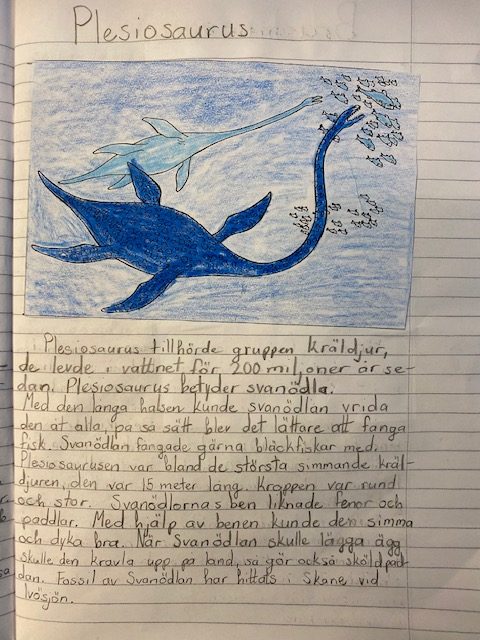 Plesiosaurus
Plesiosaurus tillhörde gruppen kräldjur,
de levde i vattnet för 200 miljoner år se-
dan. Plesiosaurus betyder svanödla.
Med den långa halsen kunde svanödlan vrida
den åt alla, på så sätt blev det lättare att fånga
fisk. Svanödlan fångade gärna bläckfiskar med.
Plesiosaurusen var bland de största simmande kräl-
djuren, den var 15 meter lång. Kroppen var rund
och stor. Svanödlornas ben liknade fenor och
paddlar. Med hjälp av benen kunde den simma
och dyka bra. När Svanödlan skulle lägga ägg
skulle den kravla upp på land, så gör också sköldpad-
dan. Fossil av Svanödlan har hittats i Skåne vid
Ivösjön.